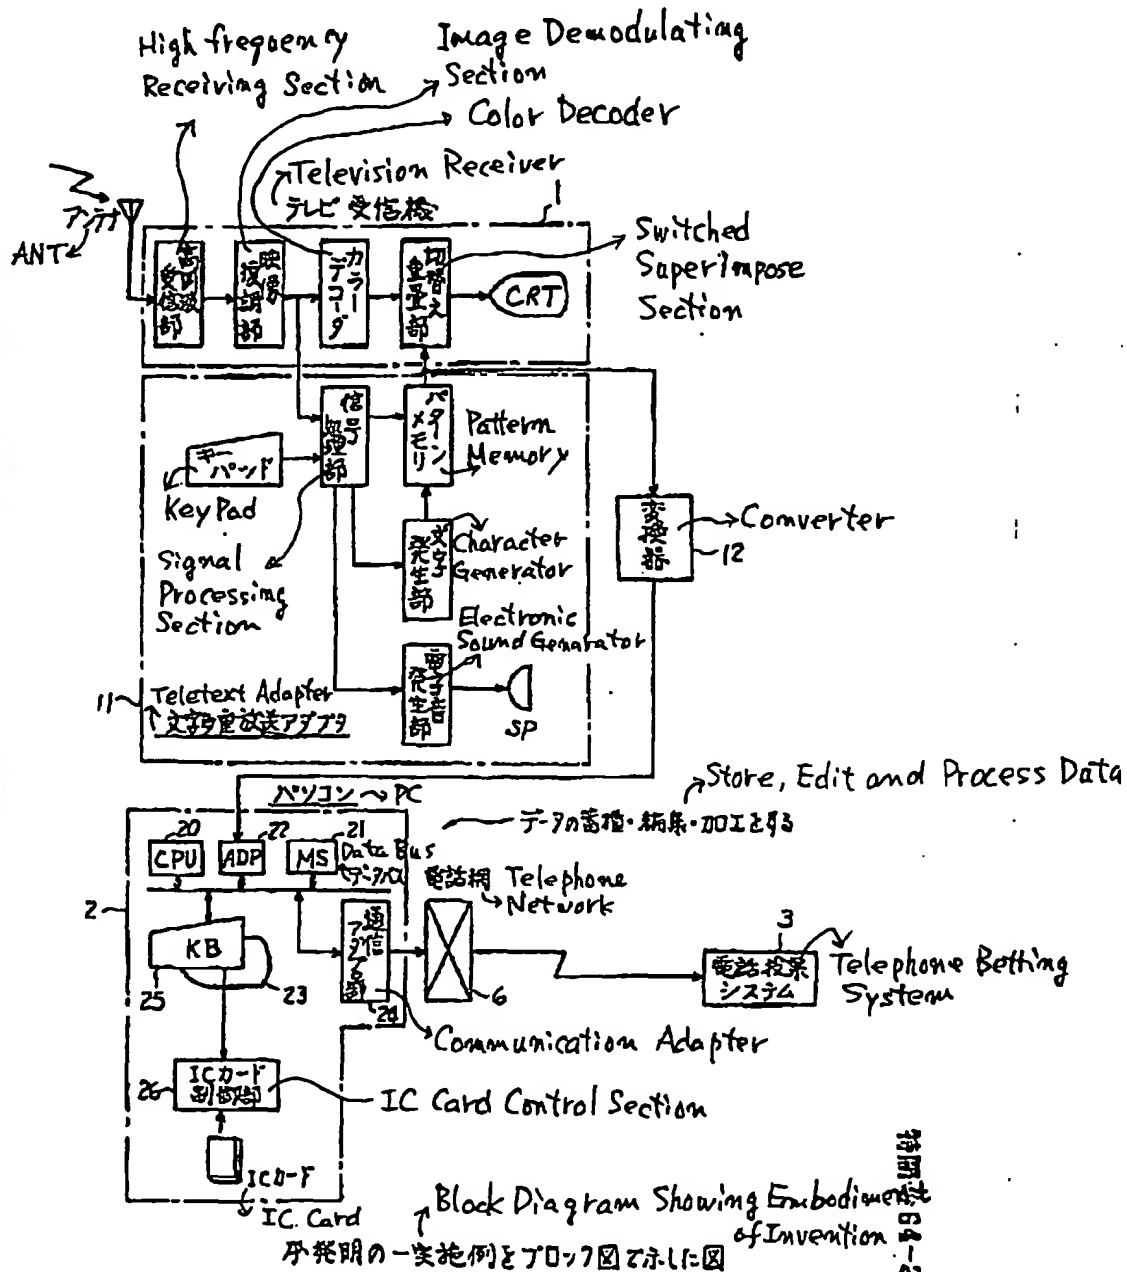 High frequency
Receiving Section
Image Demodulating
Section
Color Decoder
Television Receiver
テレビ受信機
1
アンテナ
ANT
高周波
受信部
映像
復調部
カラー
デコーダ
切替え
重畳部
CRT
Switched
Superimpose
Section
信号
処理部
パターン
メモリ
Pattern
Memory
キー
パッド
Key Pad
Signal
Processing
Section
文字
発生部
Character
Generator
変換器
Converter
12
Electronic
Sound Genarator
電子音
発生部
SP
11
Teletext Adapter
文字多重放送アダプタ
パソコン
PC
Store, Edit and Process Data
データの蓄積・編集・加工をする
20
CPU
22
ADP
21
MS
Data Bus
データバス
電話網
Telephone
Network
2
KB
25
23
通信
24
6
3
電話投票
システム
Telephone Betting
System
Communication Adapter
26
ICカード
制御部
IC Card Control Section
ICカード
IC. Card
Block Diagram Showing Embodiment
of Invention
本発明の一実施例をブロック図で示した図